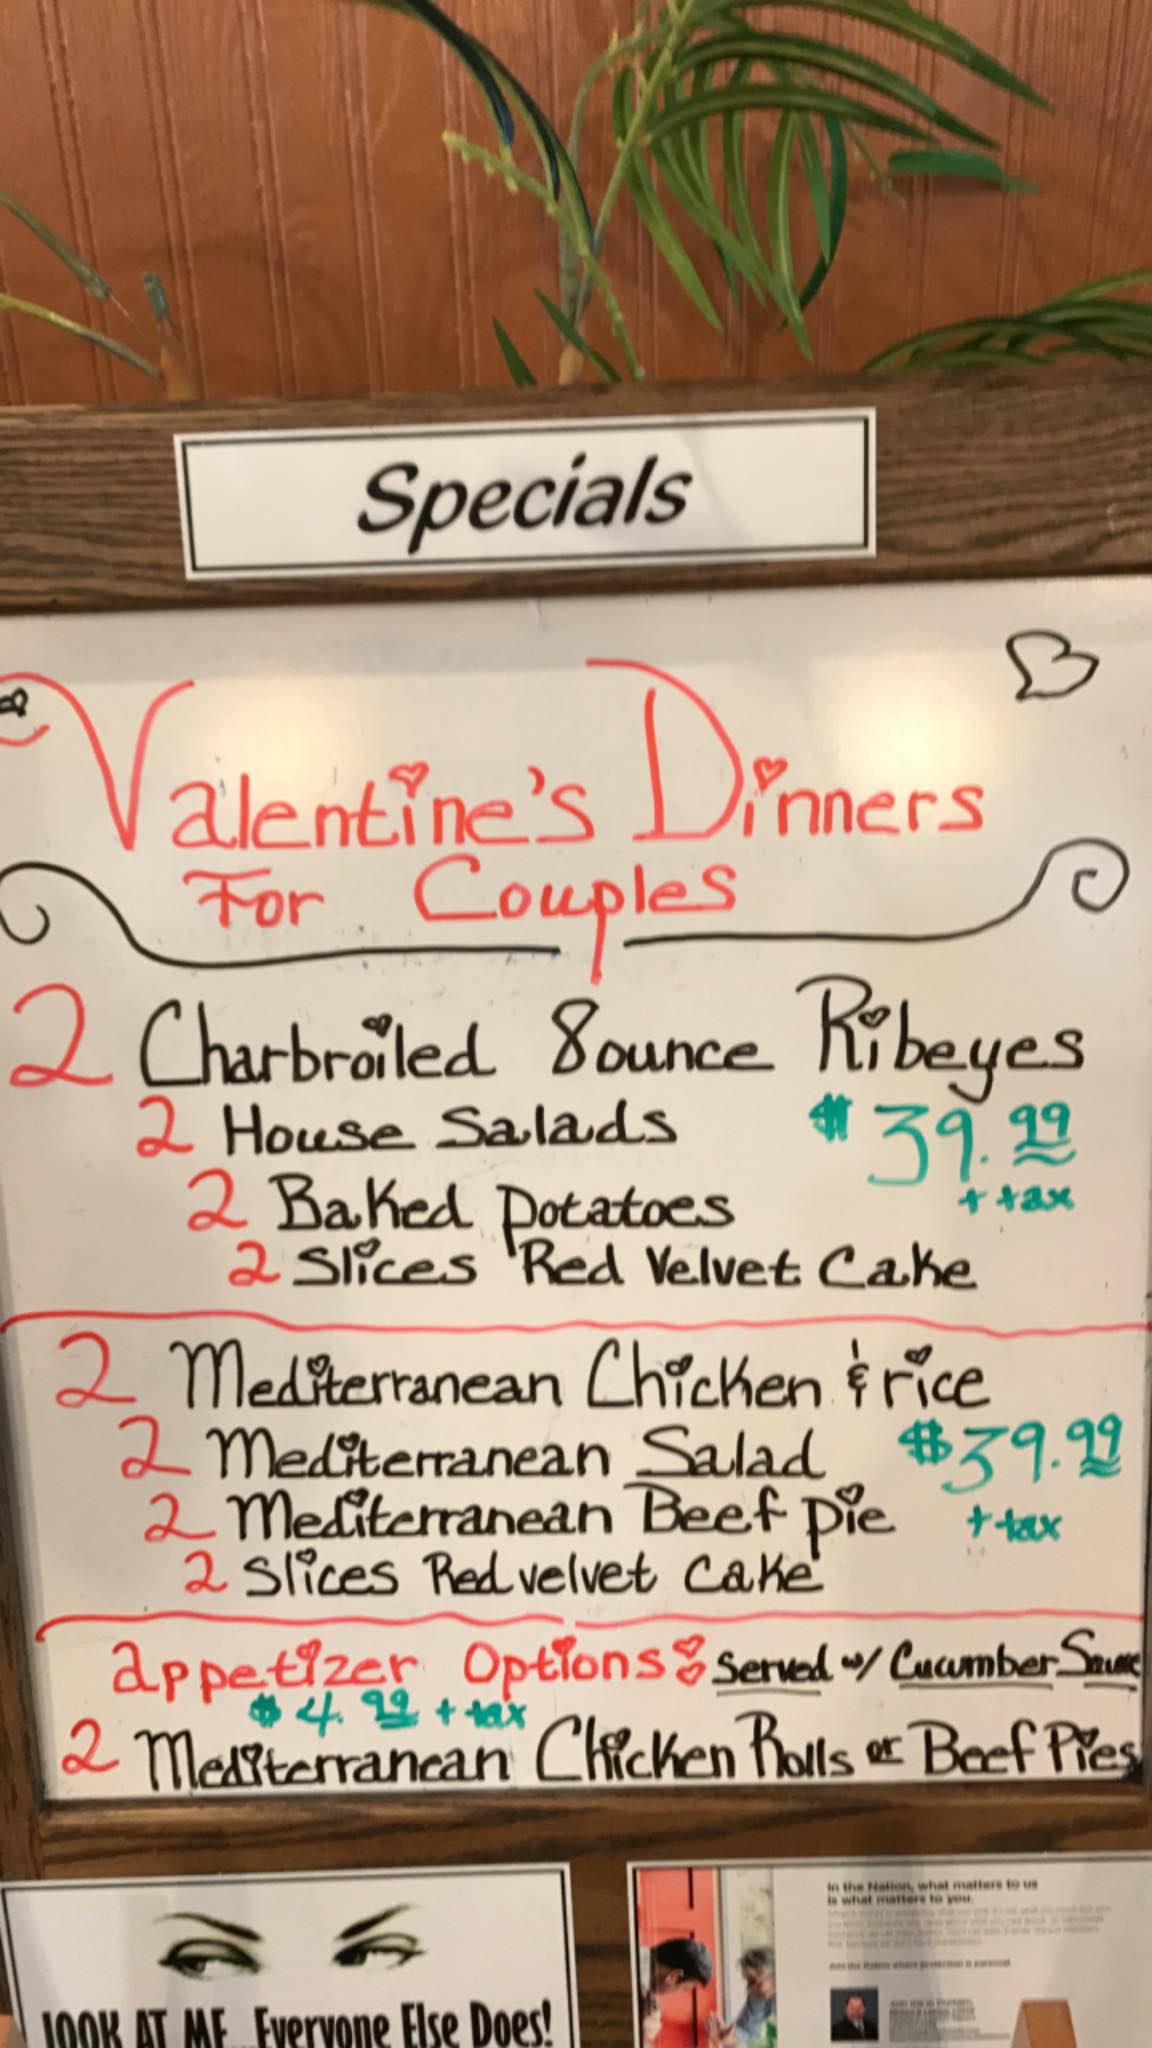 Specials
Valentine's Dinners
For Couples
2 Charbroiled 8ounce Ribeyes
2 House Salads $39.99
+ tax
2 Baked Potatoes
2 Slices Red Velvet Cake
2 Mediterranean Chicken & rice
2 Mediterranean Salad $39.99
+ tax
2 Mediterranean Beef Pie
2 Slices Red velvet Cake
appetizer Options: Served w/ Cucumber Sauce
$4.99 + tax
2 Mediterranean Chicken Rolls or Beef Pies
LOOK AT ME...Everyone Else Does!
In the Nation, what matters to us
is what matters to you.